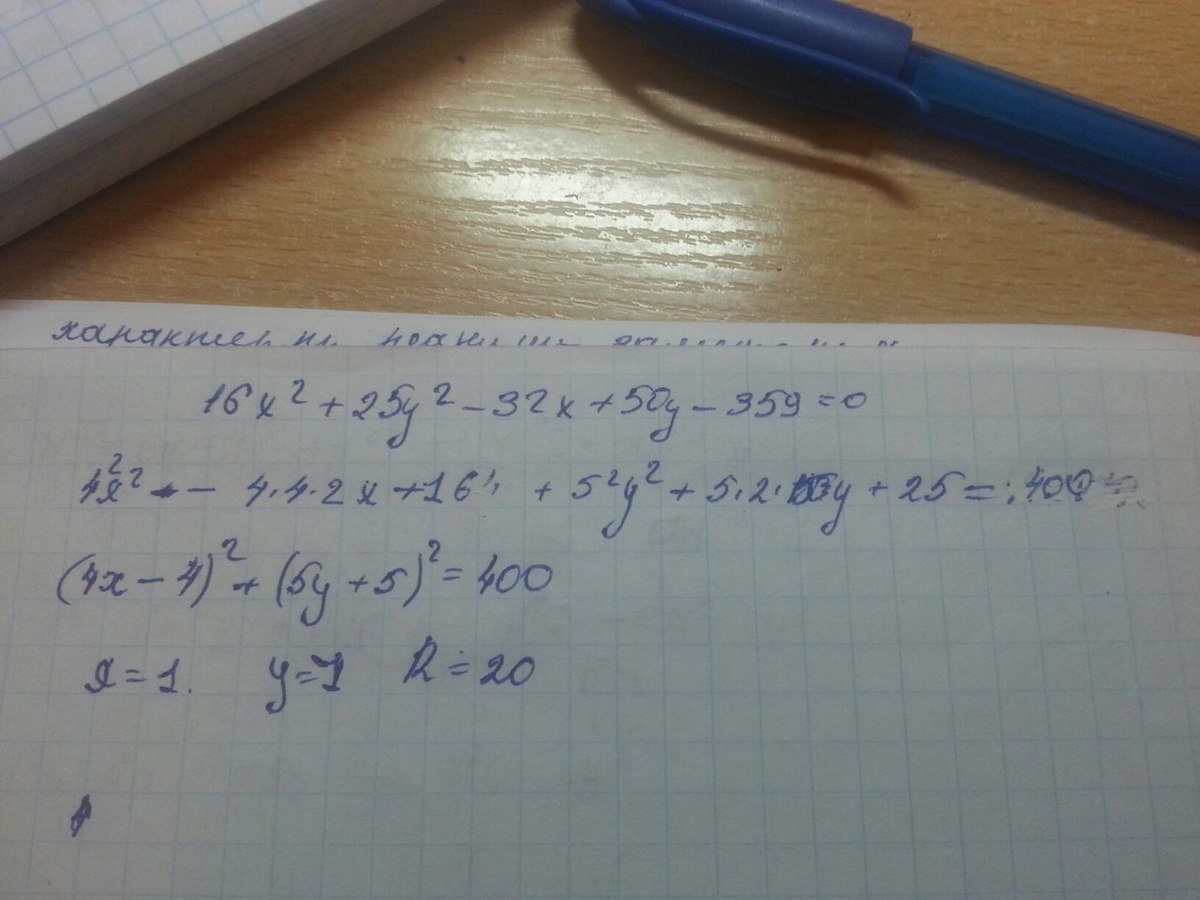 16x² + 25y² - 32x + 50y - 359 = 0
4²x² - 4·4·2x + 16 + 5²y² + 5·2·5y + 25 = 400
(4x - 4)² + (5y + 5)² = 400
x = 1. y = -1 R = 20